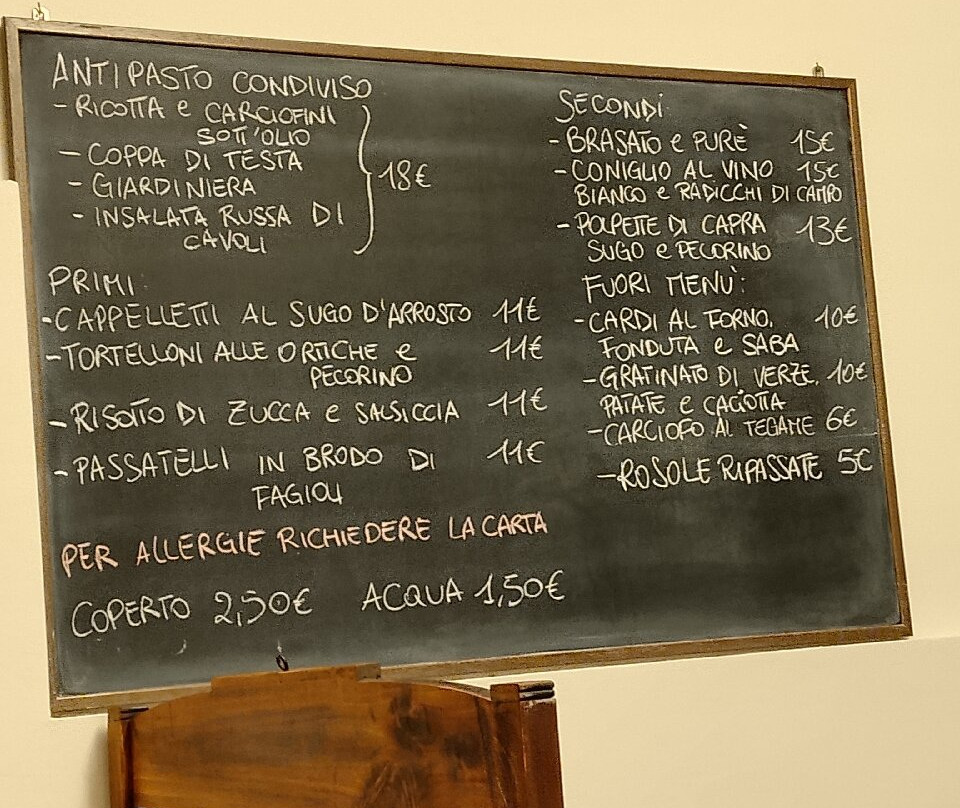 ANTIPASTO CONDIVISO
- RICOTTA e CARCIOFINI
SOTT'OLIO
- COPPA DI TESTA
- GIARDINIERA
- INSALATA RUSSA DI
CAVOLI
18€
PRIMI:
- CAPPELLETTI AL SUGO D'ARROSTO 11€
- TORTELLONI ALLE ORTICHE e 11€
PECORINO
- RISOTTO DI ZUCCA e SALSICCIA 11€
- PASSATELLI IN BRODO DI 11€
FAGIOLI
PER ALLERGIE RICHIEDERE LA CARTA
COPERTO 2,50€ ACQUA 1,50€
SECONDI
- BRASATO e PURÈ 15€
- CONIGLIO AL VINO 15€
BIANCO e RADICCHI DI CAMPO
- POLPETTE DI CAPRA 13€
SUGO e PECORINO
FUORI MENÙ:
- CARDI AL FORNO, 10€
FONDUTA e SABA
- GRATINATO DI VERZE, 10€
PATATE e CACIOTTA
- CARCIOFO AL TEGAME 6€
- ROSOLE RIPASSATE 5€